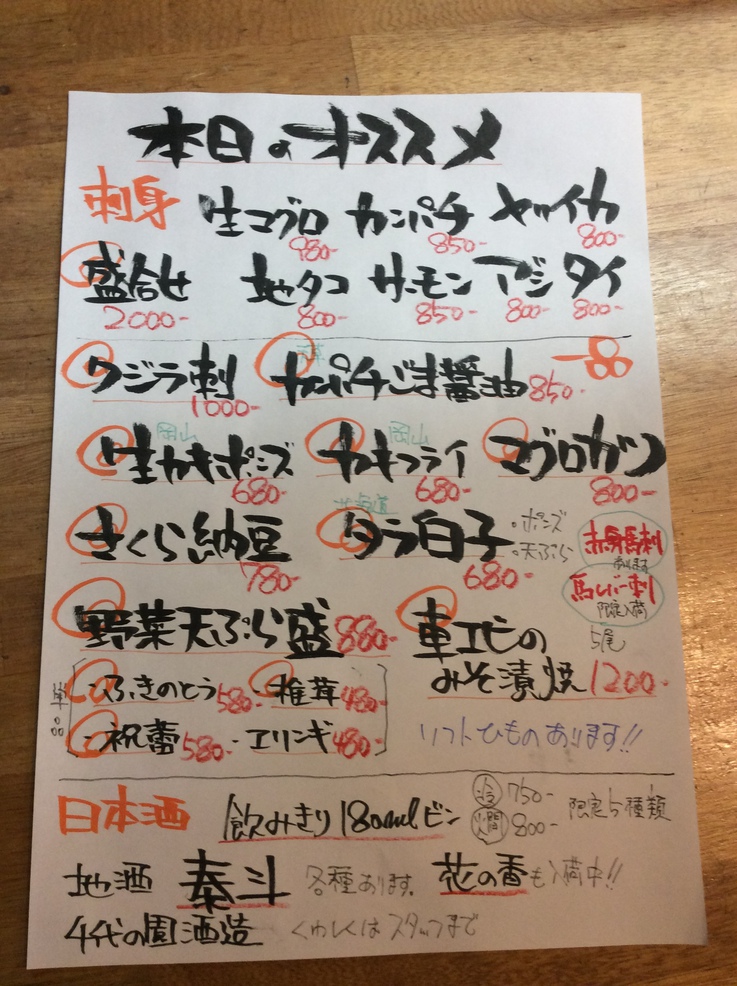 本日のオススメ
刺身 生マグロ 980- カンパチ 850- ヤリイカ 800-
盛合せ 2000- 地タコ 800- サーモン 850- アジ 800- タイ 800-
一品
クジラ刺 1000- カンパチごま醤油 850-
岡山 生カキポンズ 680- 岡山 カキフライ 680- マグロカツ 800-
さくら納豆 780- 北海道 タラ白子 680- ・ポンズ ・天ぷら
赤身馬刺 あります
馬レバー刺 限定入荷
野菜天ぷら盛 880- 車エビの 5尾
みそ漬焼 1200-
単品 ・ふきのとう 580- ・椎茸 480-
・祝蕾 580- ・エリンギ 480-
ソフトひものあります!!
日本酒 飲みきり180mlビン 冷 750- 燗 800- 限定5種類
地酒 泰斗 各種あります。 花の香も入荷中!!
千代の園酒造 くわしくはスタッフまで